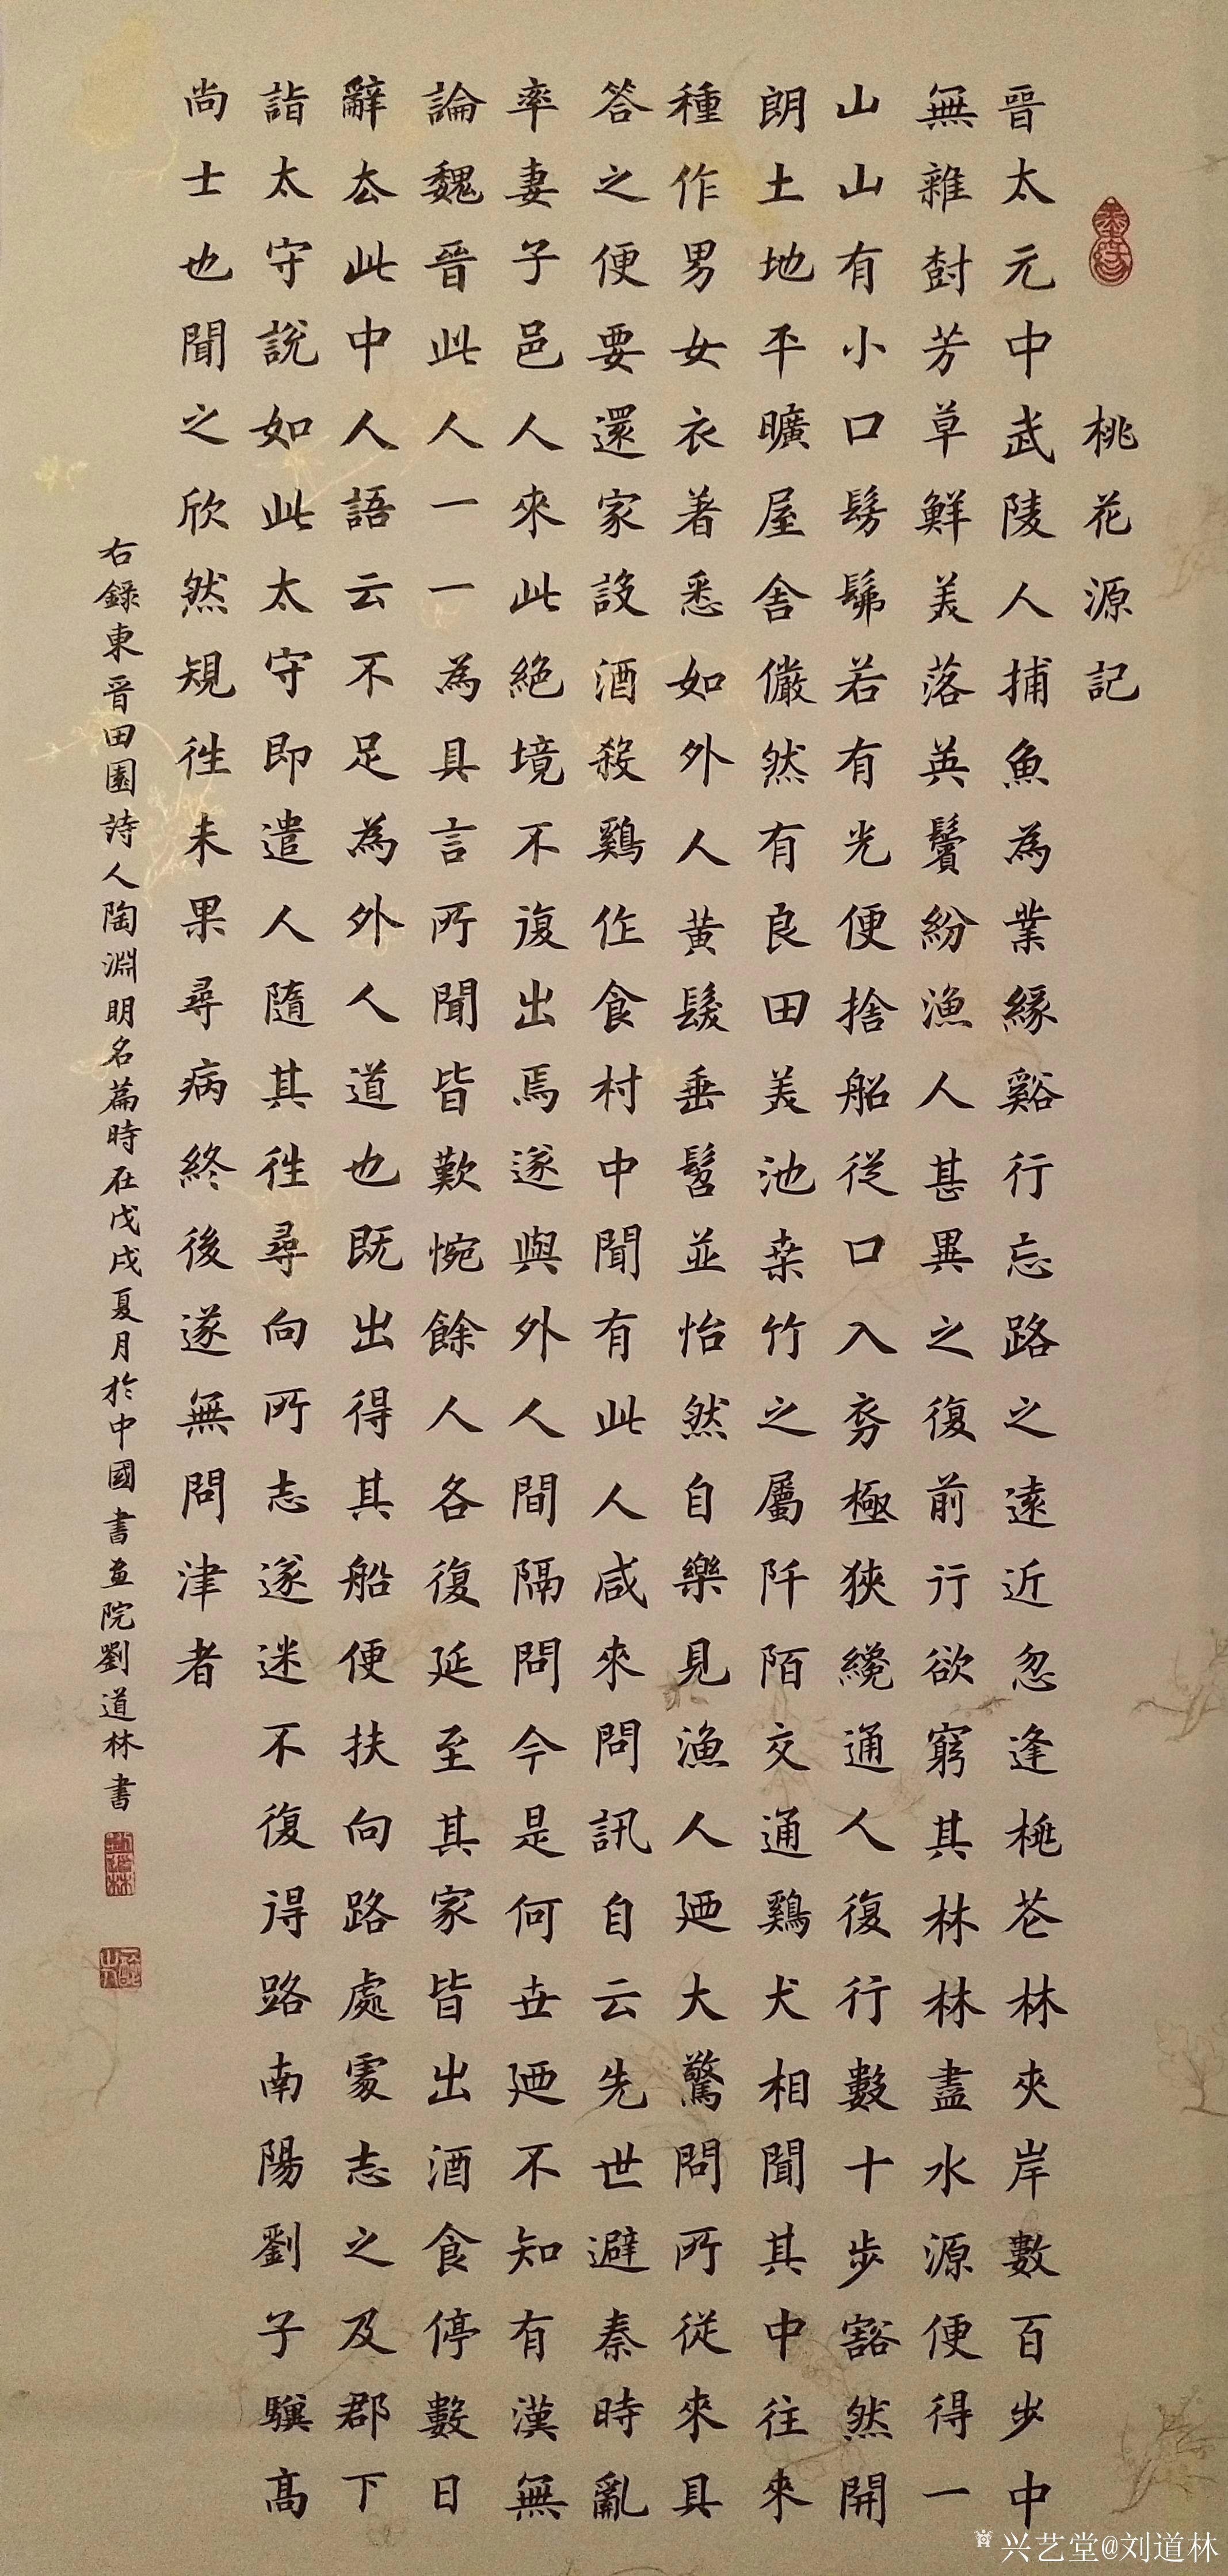 桃花源記
晉太元中武陵人捕魚為業緣谿行忘路之遠近忽逢桃花林夾岸數百步中
無雜樹芳草鮮美落英鬢紛漁人甚異之復前行欲窮其林林盡水源便得一
山山有小口髣髴若有光便捨船從口入初極狹纔通人復行數十步豁然開
朗土地平曠屋舍儼然有良田美池桑竹之屬阡陌交通鷄犬相聞其中往來
種作男女衣著悉如外人黃髮垂髫並怡然自樂見漁人廼大驚問所從來具
答之便要還家設酒殺鷄作食村中聞有此人咸來問訊自云先世避秦時亂
率妻子邑人來此絕境不復出焉遂與外人間隔問今是何世廼不知有漢無
論魏晉此人一一為具言所聞皆歎惋餘人各復延至其家皆出酒食停數日
辭去此中人語云不足為外人道也既出得其船便扶向路處處志之及郡下
詣太守說如此太守即遣人隨其往尋向所志遂迷不復得路南陽劉子驥高
尚士也聞之欣然規往未果尋病終後遂無問津者
右錄東晉田園詩人陶淵明名篇時在戊戌夏月於中國書畫院劉道林書
劉道林
兴艺堂@刘道林